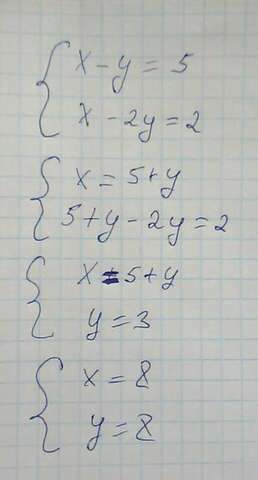 x - y = 5
x - 2y = 2
x = 5+y
5+y - 2y = 2
x = 5+y
y = 3
x = 8
y = 8